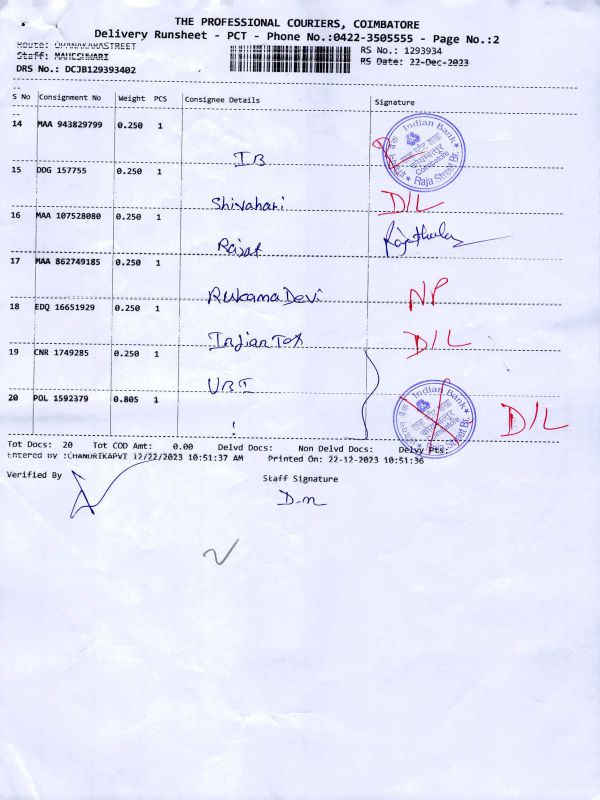 THE PROFESSIONAL COURIERS, COIMBATORE
Delivery Runsheet - PCT - Phone No.:0422-3505555 - Page No.:2
Route: STREET
Staff: MAHESHWARI
DRS No.: DCJB129393402
RS No.: 1293934
RS Date: 22-Dec-2023
S No Consignment No Weight PCS Consignee Details Signature
14 MAA 943829799 0.250 1
IB
Indian Bank
Coimbatore
Raja Street Br.
15 DDG 157755 0.250 1
Shivahari D/L
16 MAA 107528080 0.250 1
Rajat
17 MAA 862749185 0.250 1
Rukama Devi NP
18 EDQ 16651929 0.250 1
Indian Tex D/L
19 CNR 1749285 0.250 1
UBI
20 POL 1592379 0.805 1
Indian Bank
Coimbatore
Raja Street Br.
D/L
Tot Docs: 20 Tot COD Amt: 0.00 Delvd Docs: Non Delvd Docs: Delvy Pts:
Entered By :CHANDRIKAPVI 12/22/2023 10:51:37 AM Printed On: 22-12-2023 10:51:36
Verified By
Staff Signature
D.m